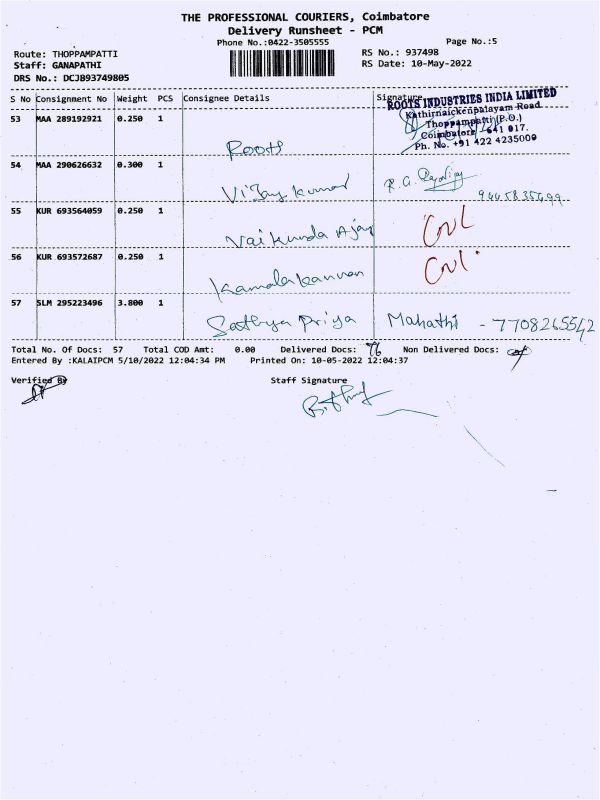 THE PROFESSIONAL COURIERS, Coimbatore
Delivery Runsheet - PCM
Phone No.:0422-3505555
Page No.:5
Route: THOPPAMPATTI
RS No.: 937498
Staff: GANAPATHI
RS Date: 10-May-2022
DRS No.: DCJB93749805
S No Consignment No Weight PCS Consignee Details Signature
ROOTS INDUSTRIES INDIA LIMITED
Kathirnaickenpalayam Road
Thoppampatti (P.O.)
Coimbatore - 641 017.
Ph. No. +91 422 4235009
53 MAA 289192921 0.250 1
Roots
54 MAA 290626632 0.300 1
Vijay kumar R.G.
55 KUR 693564059 0.250 1
Vaikunda Ajay
56 KUR 693572687 0.250 1
kamala kannan
57 SLM 295223496 3.800 1
Sathya Priya Mahathi - 7708265542
Total No. Of Docs: 57 Total COD Amt: 0.00 Delivered Docs: Non Delivered Docs:
Entered By :KALAIPCM 5/10/2022 12:04:34 PM Printed On: 10-05-2022 12:04:37
Verified By Staff Signature